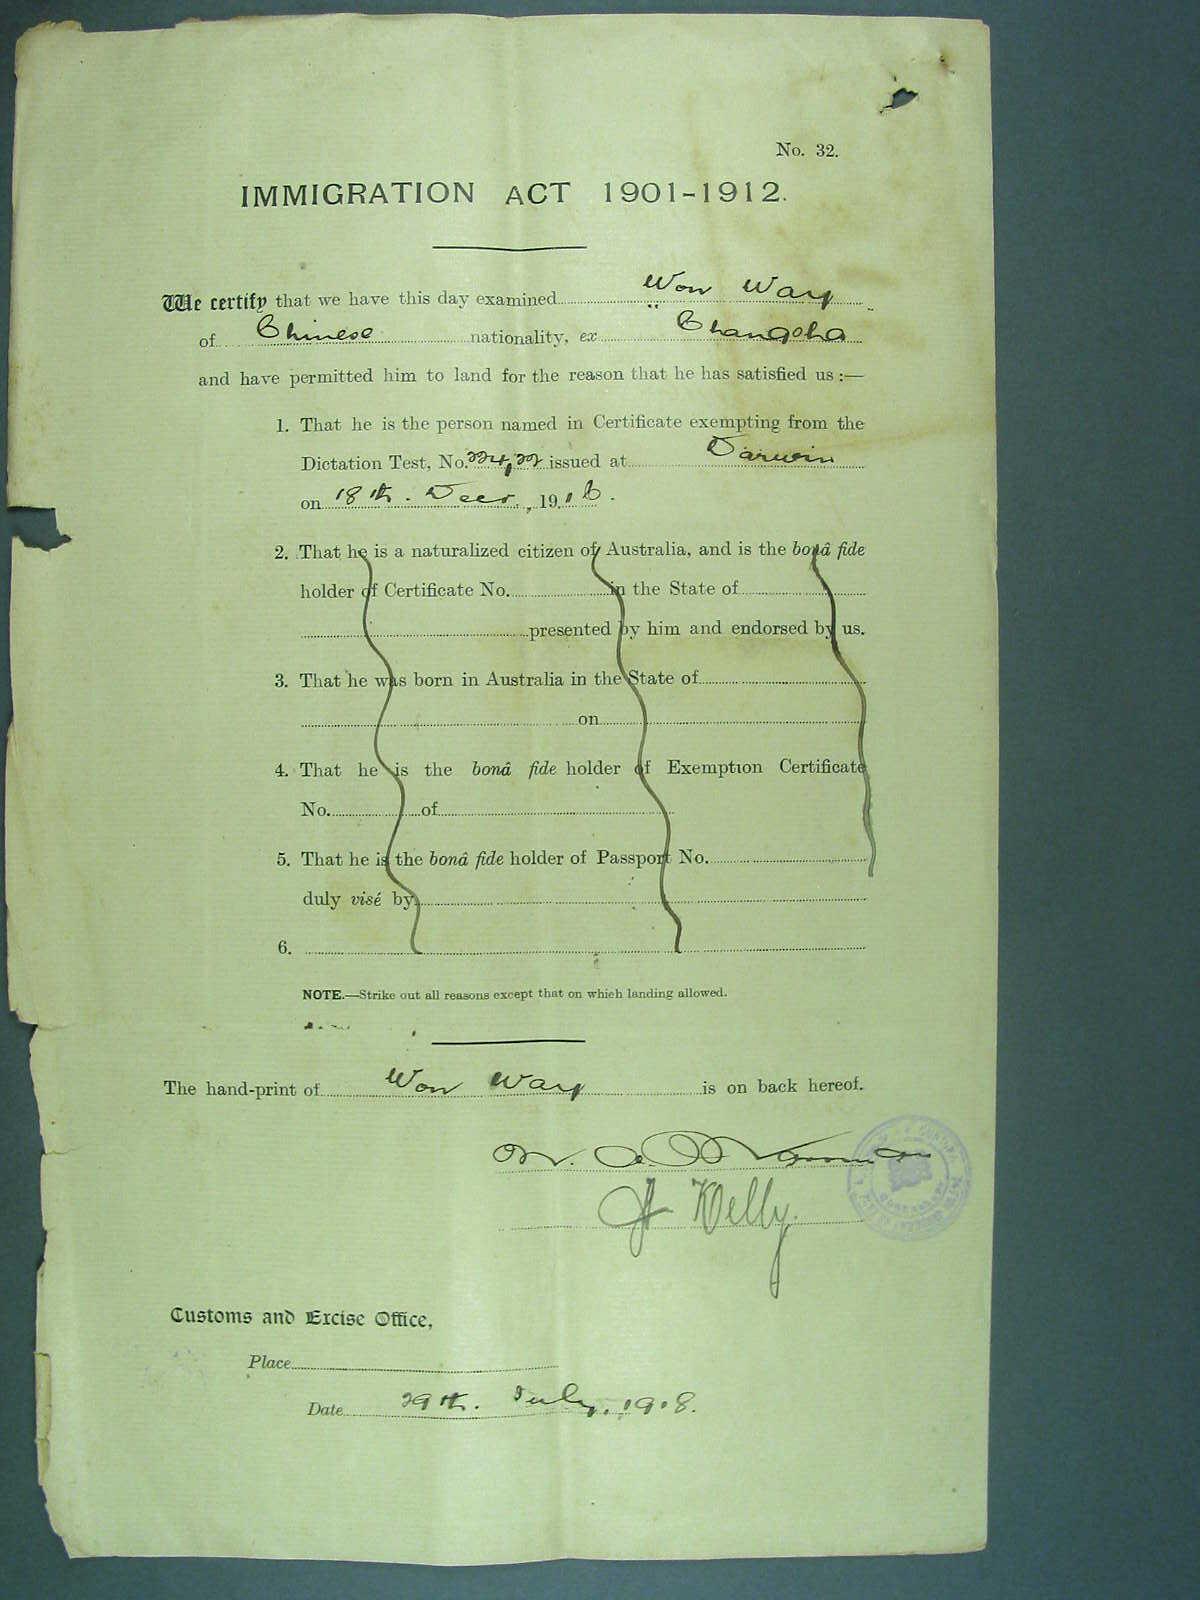 No. 32.
IMMIGRATION ACT 1901-1912.
We certify that we have this day examined Won Way
of Chinese nationality, ex "Changsha
and have permitted him to land for the reason that he has satisfied us :—
1. That he is the person named in Certificate exempting from the
Dictation Test, No. issued at Darwin
on 18th. Decr., 1916.
2. That he is a naturalized citizen of Australia, and is the bonâ fide
holder of Certificate No. in the State of
presented by him and endorsed by us.
3. That he was born in Australia in the State of
on
4. That he is the bonâ fide holder of Exemption Certificate
No. of
5. That he is the bonâ fide holder of Passport No.
duly visé by
6.
NOTE.—Strike out all reasons except that on which landing allowed.
The hand-print of Won Way is on back hereof.
Kelly.
Customs and Excise Office,
Place
Date 29th. July, 1918.